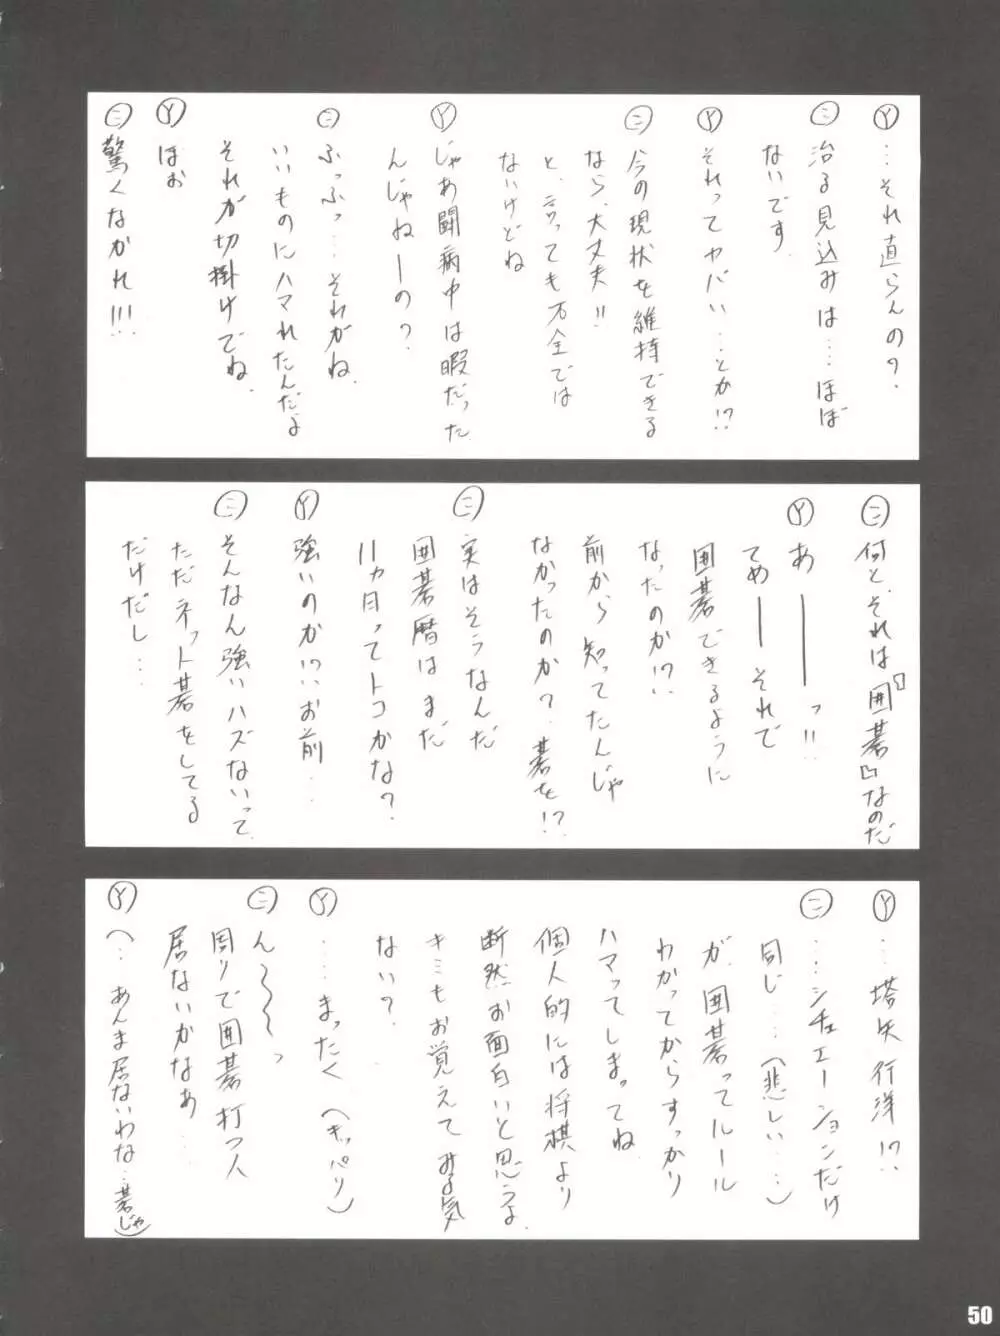 Ⓨ …それ直らんの?
㊁ 治る見込みは…ほぼ
ないです.
Ⓨ それってヤバい…とか!?
㊁ 今の現状を維持できる
なら、大丈夫!!
と、言っても万全では
ないけどね
Ⓨ じゃあ闘病中は暇だった
んじゃねーの?
㊁ ふっふっ…それがね.
いいものにハマれたんだよ
それが切掛けでね.
Ⓨ ほぉ
㊁ 驚くなかれ!!!
㊁ 何と、それは『囲碁』なのだ
Ⓨ あ――っ!!
てめ――それで
囲碁できるように
なったのか!?
前から知ってたんじゃ
なかったのか?碁を!?
㊁ 実はそうなんだ
囲碁暦はまだ
11ヵ月ってトコかな?
Ⓨ 強いのか!?お前…
㊁ そんなん強いハズないって.
ただネット碁をしてる
だけだし…
Ⓨ …塔矢行洋!?
㊁ ……シチュエーションだけ
同じ…(悲しい…)
が、囲碁ってルール
わかってからすっかり
ハマってしまってね.
個人的には将棋より
断然お面白いと思うよ.
キミもお覚えてみる気
ない?
Ⓨ ……まったく(キッパリ)
㊁ ん〜〜〜っ
周りで囲碁打つ人
居ないかなぁ…
Ⓨ (…あんま居ないわな…碁じゃ)
50